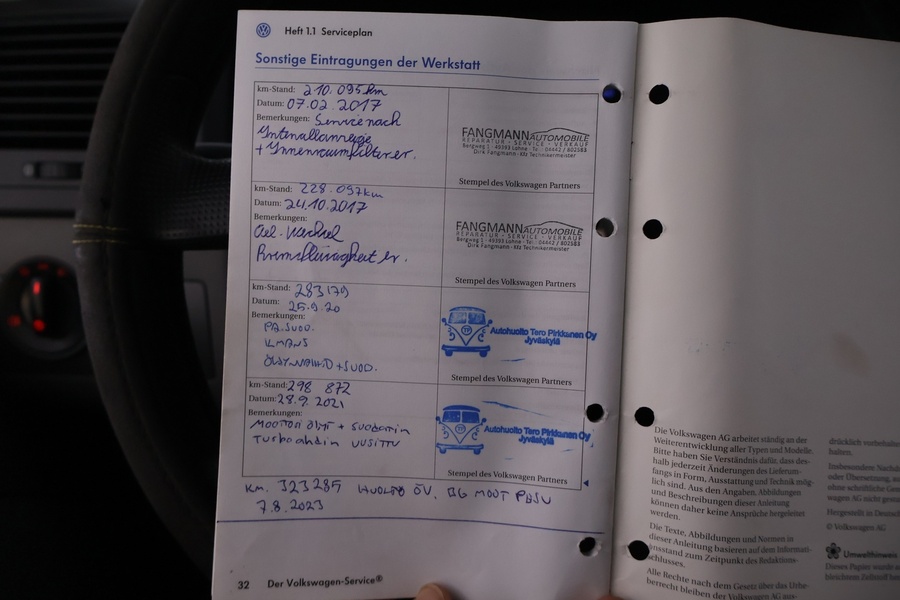 Heft 1.1 Serviceplan
Sonstige Eintragungen der Werkstatt
km-Stand: 210.095km
Datum: 07.02.2017
Bemerkungen: Service nach
Intervallanzeige
+ Innenraumfilter er.
FANGMANN AUTOMOBILE
REPARATUR - SERVICE - VERKAUF
Bergweg 1 · 49393 Lohne · Tel.: 04442 / 802583
Dirk Fangmann · Kfz Technikermeister
Stempel des Volkswagen Partners
km-Stand: 228.097km
Datum: 24.10.2017
Bemerkungen:
Oel-Wechsel
Bremsflüssigkeit er.
FANGMANN AUTOMOBILE
REPARATUR - SERVICE - VERKAUF
Bergweg 1 · 49393 Lohne · Tel.: 04442 / 802583
Dirk Fangmann · Kfz Technikermeister
Stempel des Volkswagen Partners
km-Stand: 283179
Datum: 25.9.20
Bemerkungen:
PA.SUOD.
ILMANS
+SUOD.
TP
Autohuolto Tero Pirkkanen Oy
Jyväskylä
Stempel des Volkswagen Partners
km-Stand: 298 872
Datum: 28.9.2021
Bemerkungen:
MOOTTORI ÖLJYT + SUODATIN
Turboahdin UUSITTU
TP
Autohuolto Tero Pirkkanen Oy
Jyväskylä
Stempel des Volkswagen Partners
KM. 323285 HUOLTO ÖV, BG MOOT PESU
7.8.2023
32 Der Volkswagen-Service®
Die Volkswagen AG arbeitet ständig an der
Weiterentwicklung aller Typen und Modelle.
Bitte haben Sie Verständnis dafür, dass des-
halb jederzeit Änderungen des Lieferum-
fangs in Form, Ausstattung und Technik mög-
lich sind. Aus den Angaben, Abbildungen
und Beschreibungen dieser Anleitung
können daher keine Ansprüche hergeleitet
werden.
Die Texte, Abbildungen und Normen in
dieser Anleitung basieren auf dem Informati-
onsstand zum Zeitpunkt des Redaktions-
schlusses.
Alle Rechte nach dem Gesetz über das Urhe-
berrecht bleiben der Volkswagen AG aus-
drücklich vorbehalten
halten.
Insbesondere
oder Übersetzung,
ohne schriftliche
wagen AG nicht
Hergestellt in
© Volkswagen AG
Umwelthinweis
Dieses Papier wurde
bleichtem